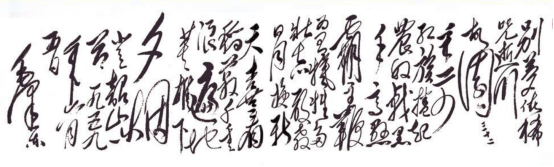 别梦依稀
咒逝川
故園三十
二年前
红旗捲起
農奴戟黑
手高懸
霸主鞭
为有犧牲多
壮志敢教
日月换新
天喜看
稻菽千重
浪遍地
英雄下
夕烟
韶山
一九五九
年六月
毛泽东